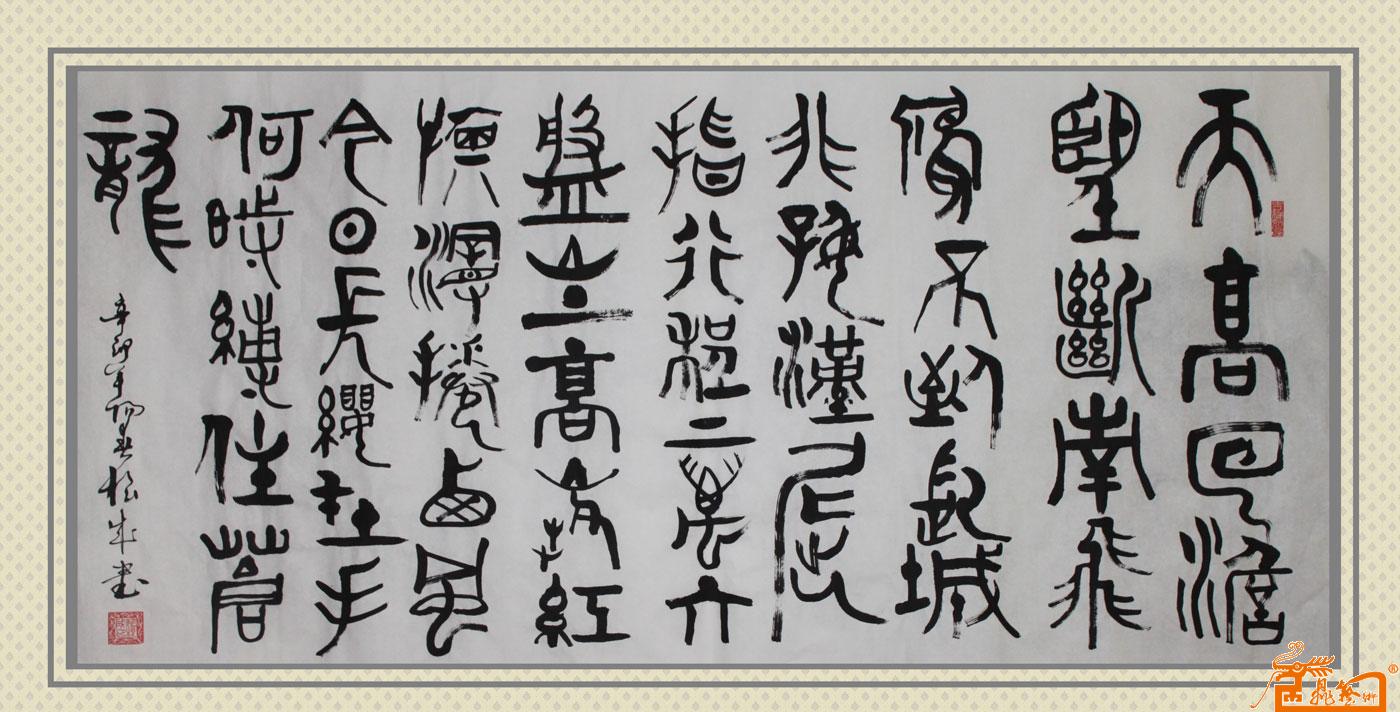 天高云澹
望斷南飛
雁不到長城
非好漢屈
指行程二萬六
盤山上高峰紅
旗漫捲西風
今日長纓在手
何時縛住蒼
龍
辛卯年陽春松成書